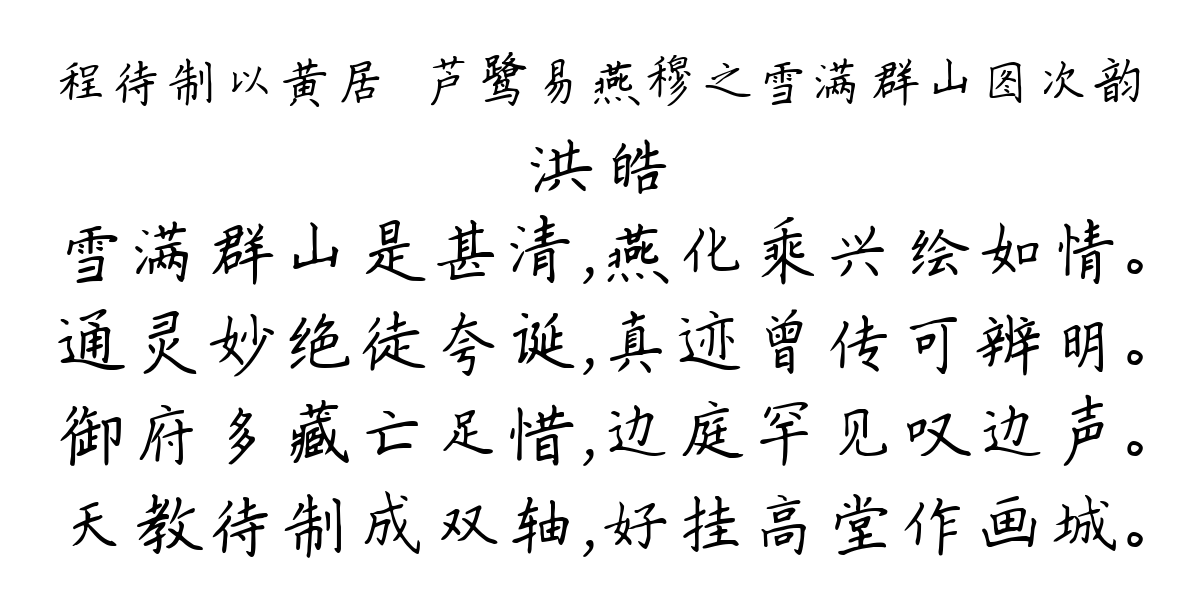 程待制以黄居 芦鹭易燕穆之雪满群山图次韵
洪皓
雪满群山是甚清,燕化乘兴绘如情。
通灵妙绝徒夸诞,真迹曾传可辨明。
御府多藏亡足惜,边庭罕见叹边声。
天教待制成双轴,好挂高堂作画城。